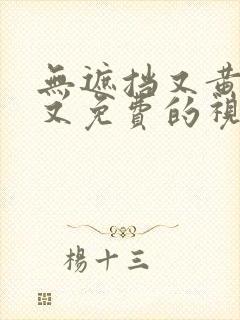 無遮挡又黄
又免費的視
楊十三